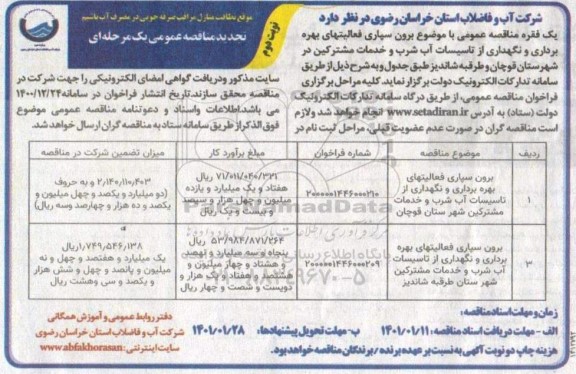 موقع نظافت منازل مراقب صرفه جویی در مصرف آب باشیم
تجدید مناقصه عمومی یک مرحله ای
نوبت دوم
شرکت آب و فاضلاب استان خراسان رضوی در نظر دارد
یک فقره مناقصه عمومی با موضوع برون سپاری فعالیتهای بهره
برداری و نگهداری از تاسیسات آب شرب و خدمات مشترکین در
شهرستان قوچان و طرقبه شاندیز طبق جدول و به شرح ذیل از طریق
سامانه تدارکات الکترونیک دولت برگزار نماید. کلیه مراحل برگزاری
فراخوان مناقصه عمومی، از طریق درگاه سامانه تدارکات الکترونیک
دولت (ستاد) به آدرس www.setadiran.ir انجام خواهد شد و لازم
است مناقصه گران در صورت عدم عضویت قبلی، مراحل ثبت نام در
سایت مذکور و دریافت گواهی امضای الکترونیکی را جهت شرکت در
مناقصه محقق سازند. تاریخ انتشار فراخوان در سامانه ۱۴۰۰/۱۲/۲۴
می باشد. اطلاعات و اسناد و دعوتنامه مناقصه عمومی موضوع
فوق الذکر از طریق سامانه ستاد به مناقصه گران ارسال خواهد شد.
ردیف موضوع مناقصه شماره فراخوان مبلغ برآورد کار میزان تضمین شرکت در مناقصه
۱ برون سپاری فعالیتهای بهره برداری و نگهداری از تاسیسات آب شرب و خدمات مشترکین شهر ستان قوچان ۲۰۰۰۰۰۱۴۴۶۰۰۰۲۱۰ ۷۱/۰۱۱/۰۴۰/۳۲۱ ریال هفتاد و یک میلیارد و یازده میلیون و چهل هزار و سیصد و بیست و یک ریال ۲٫۱۴۰٫۱۱۰٫۴۰۳ و به حروف (دو میلیارد و یکصد و چهل میلیون و یکصد و ده هزار و چهارصد وسه ریال)
۳ برون سپاری فعالیتهای بهره برداری و نگهداری از تاسیسات آب شرب و خدمات مشترکین شهر ستان طرقبه شاندیز ۲۰۰۰۰۰۱۴۴۶۰۰۰۲۰۹ ۵۳/۹۸۴/۸۷۱/۲۶۴ ریال پنجاه و سه میلیارد و نهصد و هشتاد و چهار میلیون و هشتصد و هفتاد و یک هزار و دویست و شصت و چهار ریال ۱٫۷۴۹٫۵۴۶٫۱۳۸ ریال یک میلیارد و هفتصد و چهل و نه میلیون و پانصد و چهل و شش هزار و یکصد و سی وهشت ریال
زمان و مهلت اسناد مناقصه:
الف - مهلت دریافت اسناد مناقصه: ۱۴۰۱/۰۱/۱۱ ب- مهلت تحویل پیشنهادها: ۱۴۰۱/۰۱/۲۸
هزینه چاپ دو نوبت آگهی به نسبت بر عهده برنده / برندگان مناقصه خواهد بود.
دفتر روابط عمومی و آموزش همگانی
شرکت آب و فاضلاب استان خراسان رضوی
سایت اینترنتی: www.abfakhorasan.ir